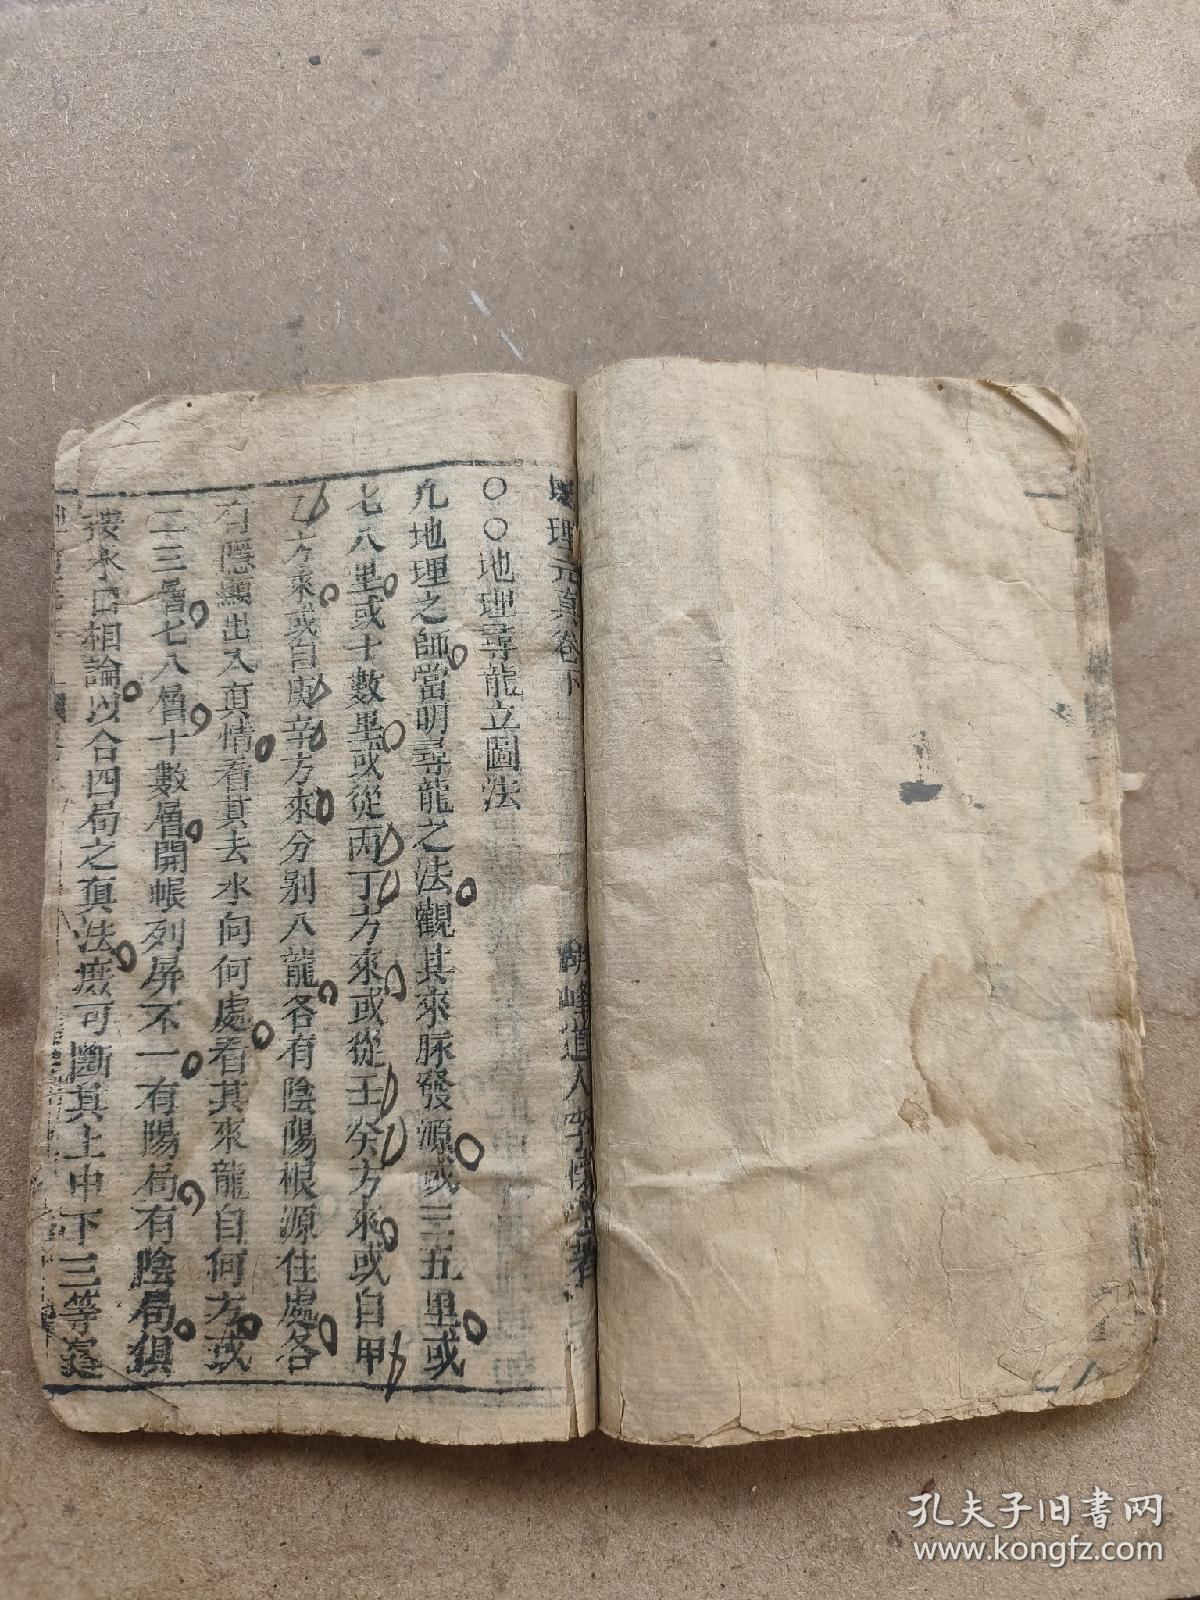 地理元真卷下
湖峰道人李懷玉著
○○地理尋龍立圖法
凡地理之師當明尋龍之法觀其來脉發源或三五里或
七八里或十數里或從丙丁方來或從壬癸方來或自甲
乙方來或自庚辛方來分别八龍各有陰陽根源住處各
有隱顯出入真情看其去水向何處看其來龍自何方或
二三層七八層十數層開帳列屏不一有陽局有陰局俱
接水口相論以合四局之眞法庶可斷其上中下三等
孔夫子旧书网
www.kongfz.com